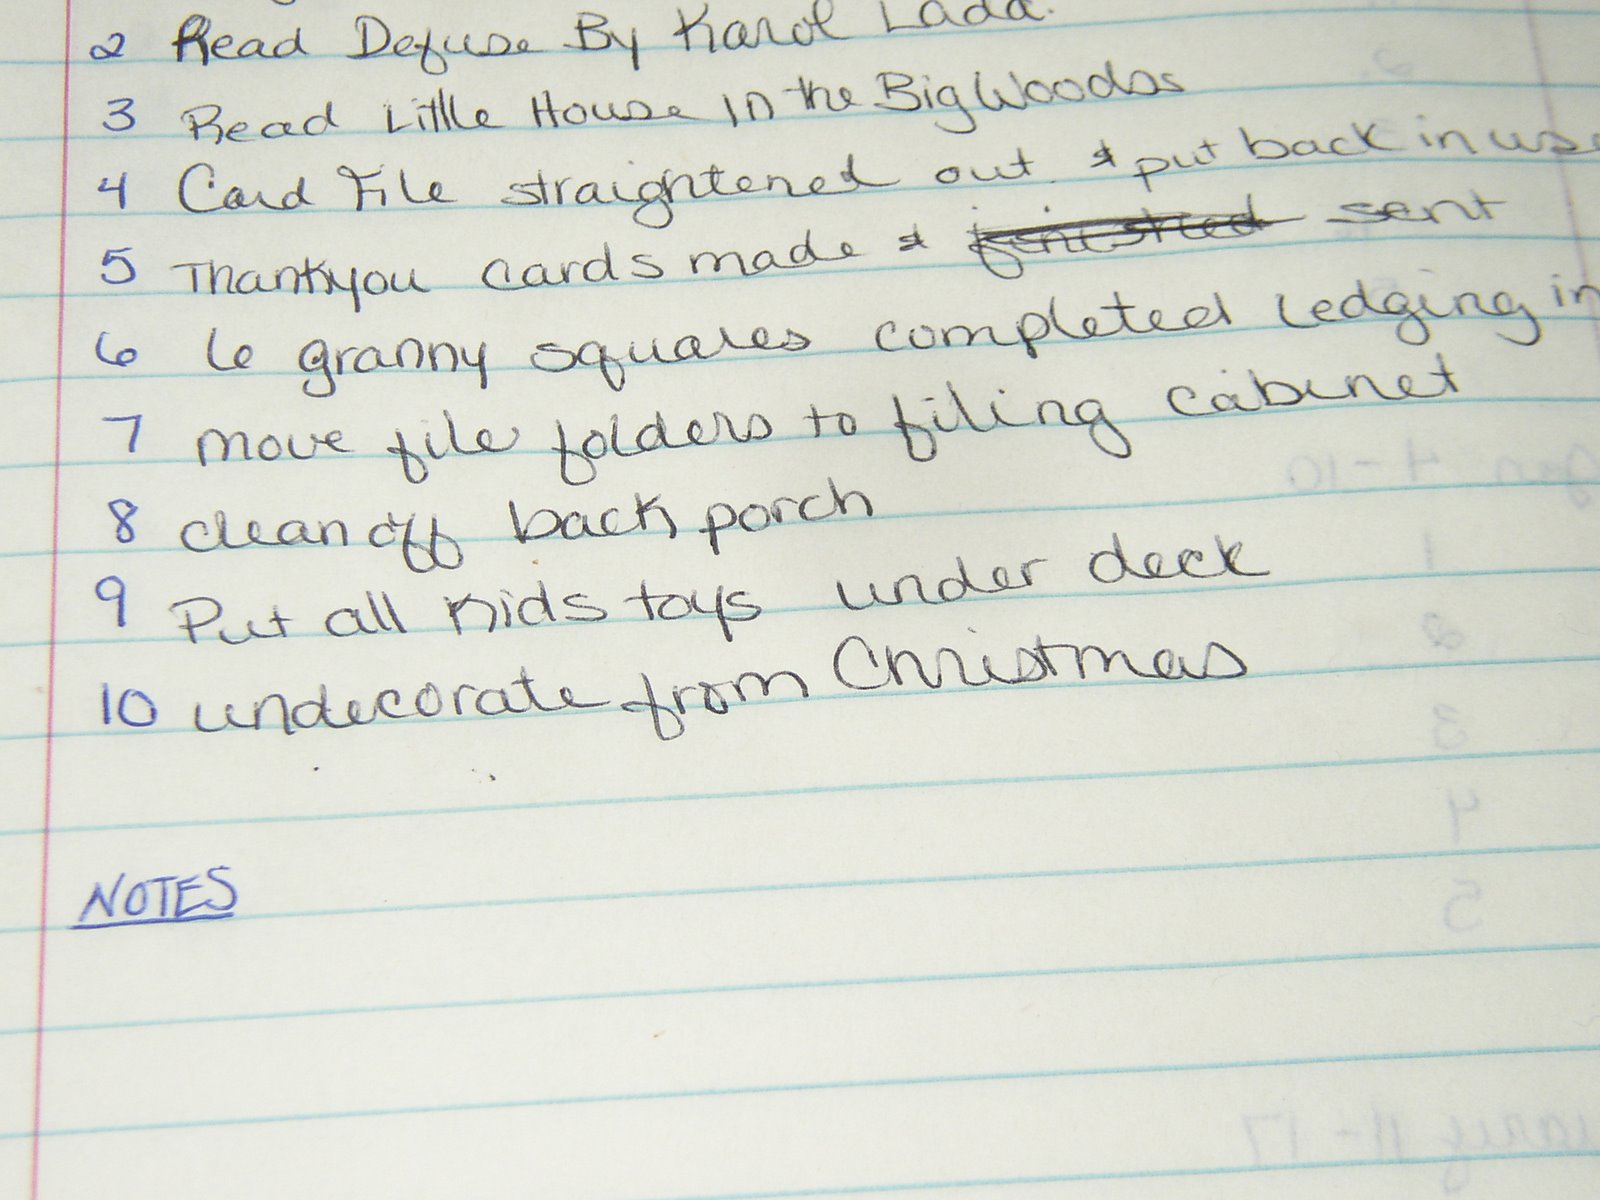 2 Read Defuse By Karol Ladd.
3 Read Little House In the Big Woods
4 Card File straightened out & put back in use
5 Thankyou cards made & finished sent
6 6 granny squares completed (edging in
7 move file folders to filing cabinet
8 clean off back porch
9 Put all kids toys under deck
10 undecorate from Christmas
NOTES